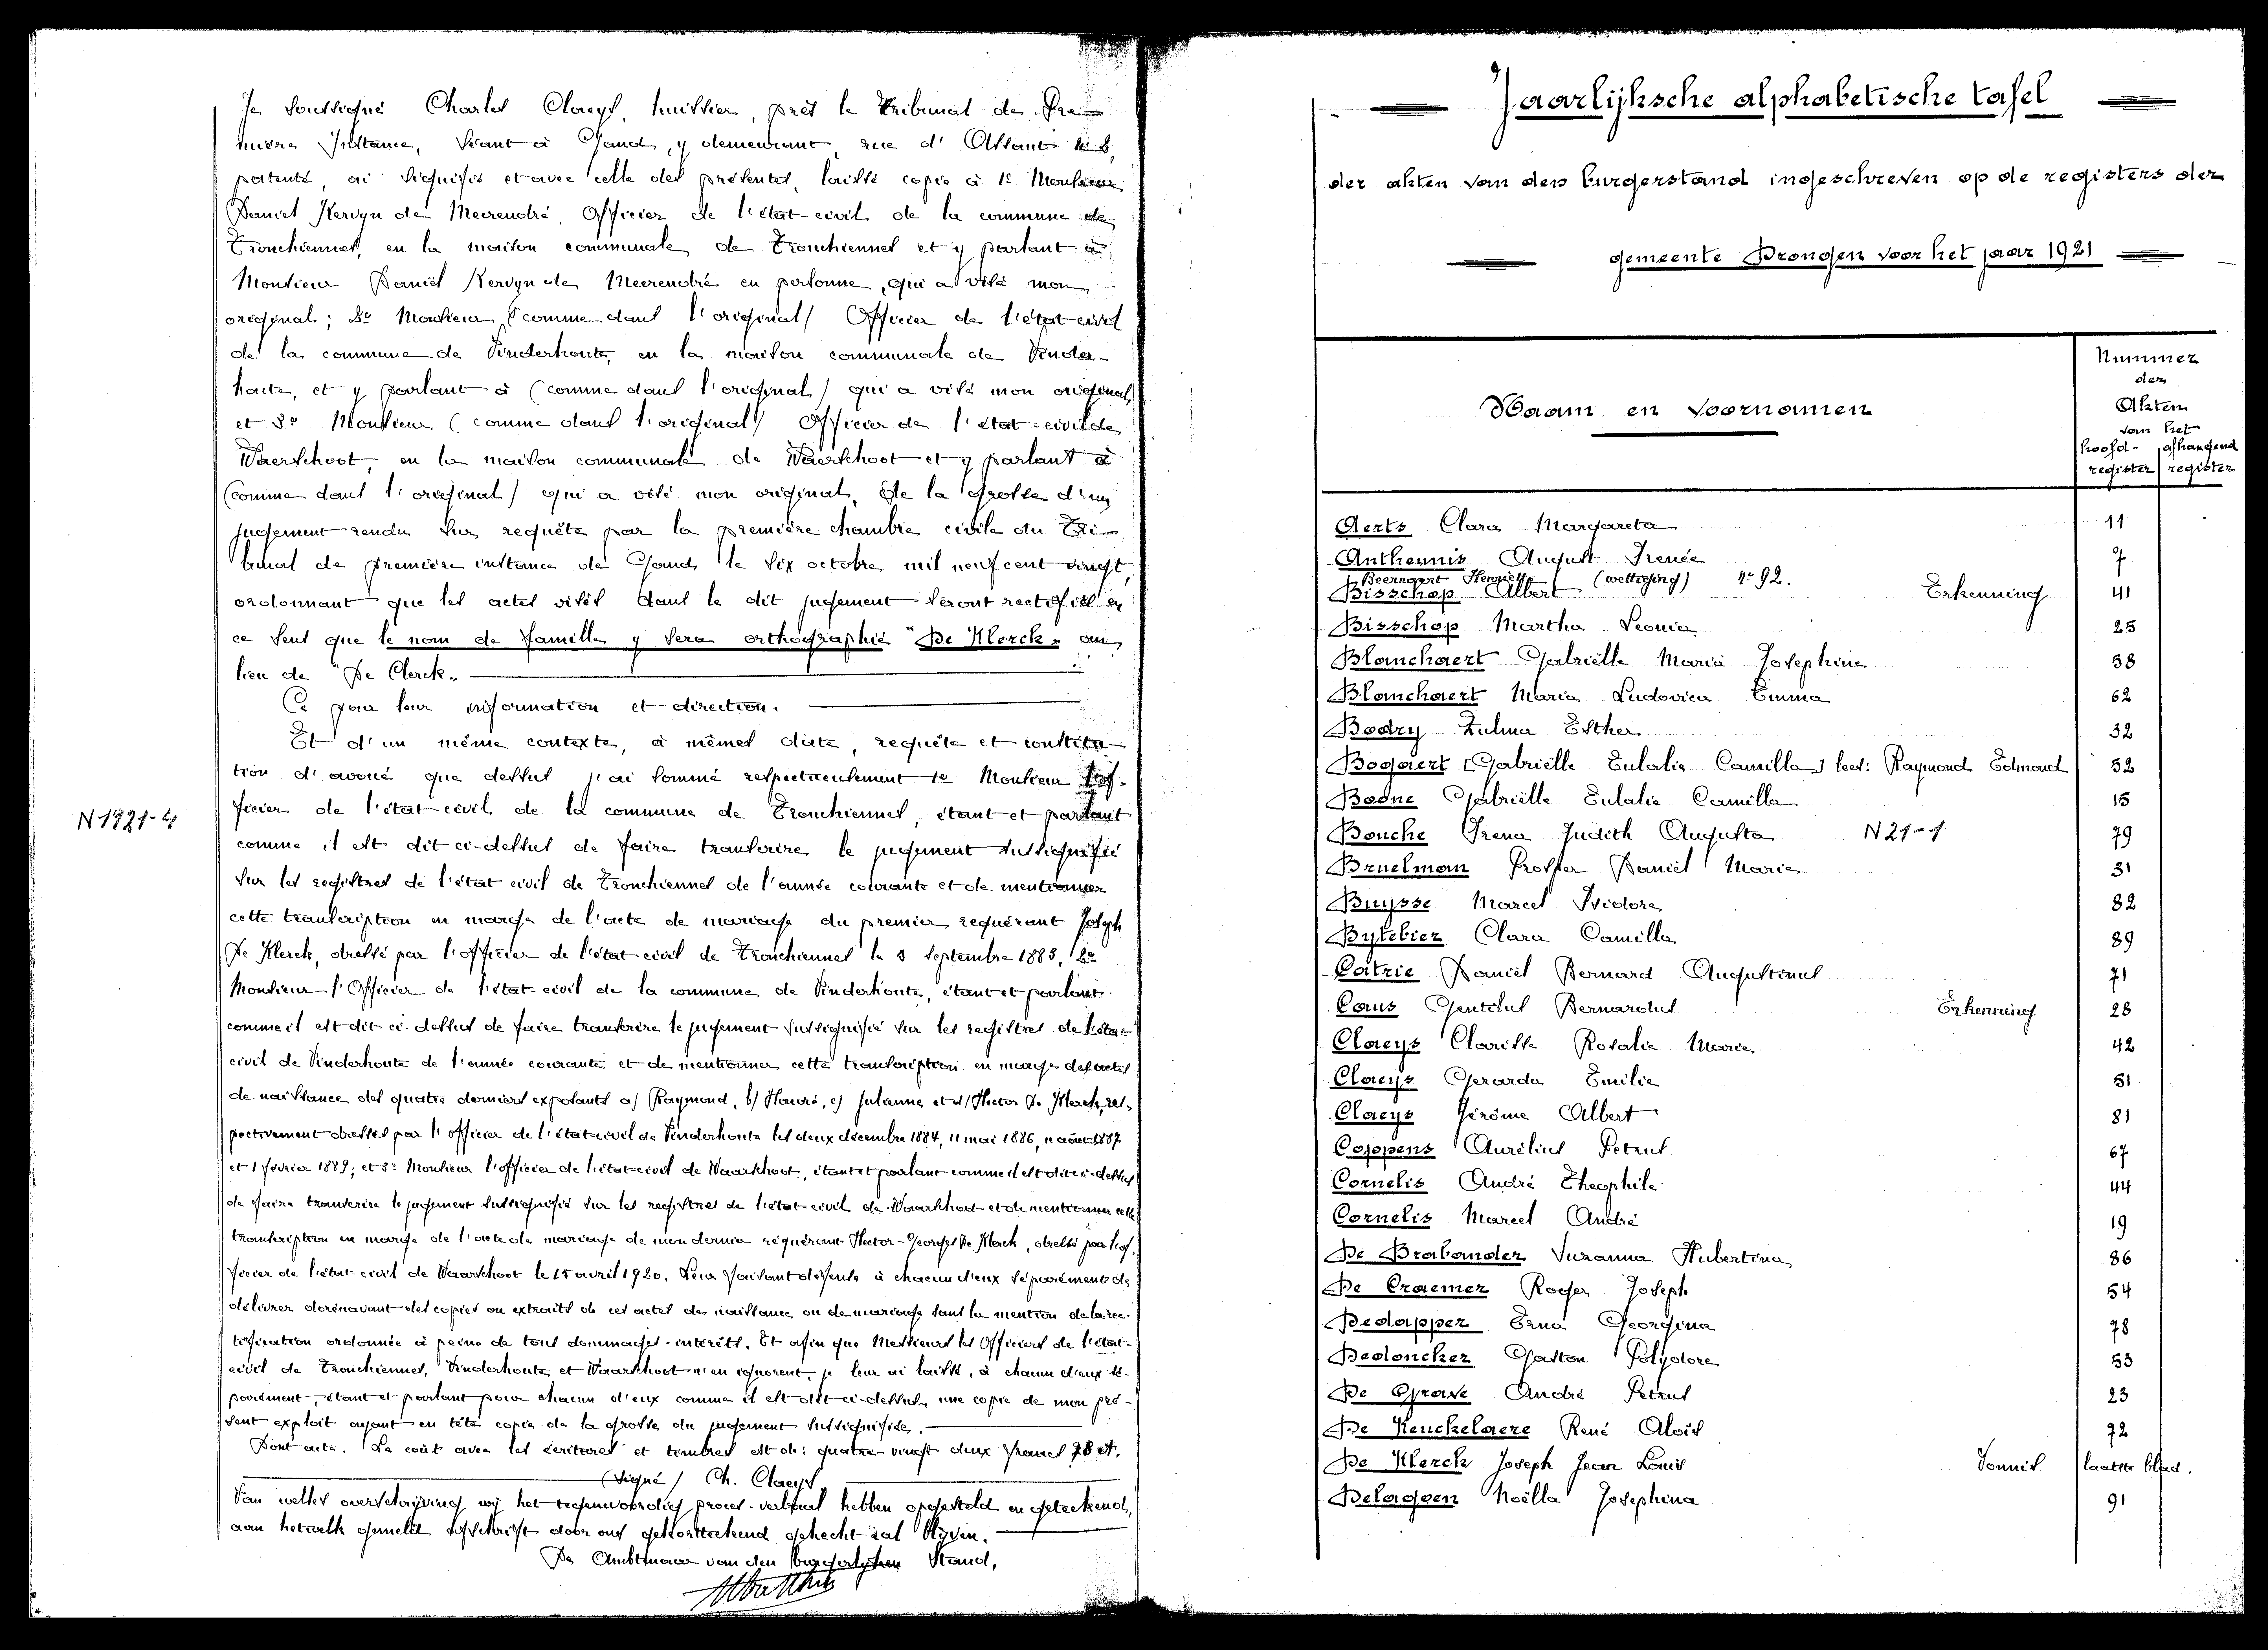 Je soussigné Charles Claeys, huissier, près le Tribunal de Pre-
mière Instance, séant à Gand, y demeurant, rue d'Assaut
patenté, ai signifié et avec celle des présentes, laissé copie à 1º Monsieur
Daniel Kervyn de Meerendré, Officier de l'état-civil de la commune de
Tronchiennes, en la maison communale de Tronchiennes et y parlant à
Monsieur Daniël Kervyn de Meerendré en personne, qui a visé mon
original; 2º Monsieur (comme dans l'original) Officier de l'état civil
de la commune de Vinderhoute, en la maison communale de Vinder-
haute, et y parlant à (comme dans l'original) qui a visé mon original
et 3º Monsieur (comme dans l'original) Officier de l'état-civil de
Waerschoot, en la maison communale de Waerschoot et y parlant à
(comme dans l'original) qui a visé mon original, de la grosse d'un
jugement rendu sur requête par la première chambre civile du Tri-
bunal de première instance de Gand, le six octobre mil neuf cent vingt,
ordonnant que les actes visés dans le dit jugement seront rectifiés en
ce sens que le nom de famille y sera orthographié "De Klerck" au
lieu de "De Clerck"
Ce pour leur information et direction.
Et d'un même contexte, à mêmes date, requête et constitu-
tion d'avoué que dessus j'ai sommé respectueusement 1º Monsieur l'of-
ficier de l'état-civil de la commune de Tronchiennes, étant et parlant
N 1921-4
comme il est dit ci-dessus de faire transcrire le jugement sussignifié
sur les registres de l'état civil de Tronchiennes de l'année courante et de mentionner
cette transcription en marge de l'acte de mariage du premier requérant Joseph
De Klerck, dressé par l'officier de l'état-civil de Tronchiennes le 3 septembre 1883, 2º
Monsieur l'Officier de l'état-civil de la commune de Vinderhoute, étant et parlant
comme il est dit ci-dessus de faire transcrire le jugement sussignifié sur les registres de l'état
civil de Vinderhoute de l'année courante et de mentionner cette transcription en marge des actes
de naissance des quatre derniers exposants a) Raymond, b) Honoré, c) Julienne et d) Hector De Klerck, res-
pectivement dressés par l'officier de l'état-civil de Vinderhoute les deux décembre 1884, 11 mai 1886, 11 août 1887
et 1 février 1889; et 3º Monsieur l'officier de l'état-civil de Waarschoot, étant et parlant comme il est dit ci-dessus
de faire transcrire le jugement sussignifié sur les registres de l'état-civil de Waarschoot et de mentionner cette
transcription en marge de l'acte de mariage de mon dernier requérant Hector-Georges De Klerck, dressé par l'of-
ficier de l'état-civil de Waarschoot le 15 avril 1920. Leur faisant défense à chacun d'eux séparément de
délivrer dorénavant des copies ou extraits de ces actes de naissance ou de mariage sans la mention de la rec-
tification ordonnée à peine de tous dommages-intérêts. Et afin que Messieurs les Officiers de l'état-
civil de Tronchiennes, Vinderhoute et Waarschoot n'en ignorent, je leur ai laissé, à chacun d'eux sé-
parément, étant et parlant pour chacun d'eux comme il est dit ci-dessus, une copie de mon pré-
sent exploit ayant en tête copie de la grosse du jugement sussignifiée.
Dont acte. Le coût avec les écritures et timbres est de: quatre-vingt deux francs 78 ct.
(signé) Ch. Claeys
Van welke overschrijving wij het tegenwoordig proces-verbaal hebben opgesteld en geteekend,
aan hetwelk gemeld afschrift door ons gekortteekend gehecht zal blijven.
De Ambtenaar van den burgerlijken Stand,

Jaarlijksche alphabetische tafel
der akten van den burgerstand ingeschreven op de registers der
gemeente Drongen voor het jaar 1921
Naam en voornamen
Nummer
der
Akten
van het
hoofd- afhangend
register register
Aerts Clara Margareta 11
Antheunis August Irenée 7
Beernaert Henriette (wettiging) nº 92.
Bisschop Albert Erkenning 41
Bisschop Martha Leonia 25
Blanchaert Gabriëlle Maria Josephine 58
Blanchaert Maria Ludovica Emma 62
Bodry Zulma Esther 32
Bogaert [Gabriëlle Eulalie Camilla] lees: Raymond Edmond 52
Bogne Gabriëlle Eulalie Camilla 15
Bouche Irena Judith Augusta N 21-1 79
Bruelman Prosper Daniël Maria 31
Buysse Marcel Isidore 82
Bytebier Clara Camilla 89
Catrie Daniël Bernard Augustinus 71
Caus Gentilus Bernardus Erkenning 28
Claeys Clarisse Rosalie Marie 42
Claeys Gerarda Emilie 51
Claeys Jérôme Albert 81
Coppens Aurélius Petrus 67
Cornelis André Theophile 44
Cornelis Marcel André 19
De Brabander Suzanna Hubertina 86
De Craemer Roger Joseph 54
Dedapper Erna Georgina 78
Dedoncker Gaston Polydore 53
De Grave André Petrus 23
De Keuckelaere René Aloïs 72
De Klerck Joseph Jean Louis Vonnis laatste blad.
Delaggen Noëlla Josephina 91